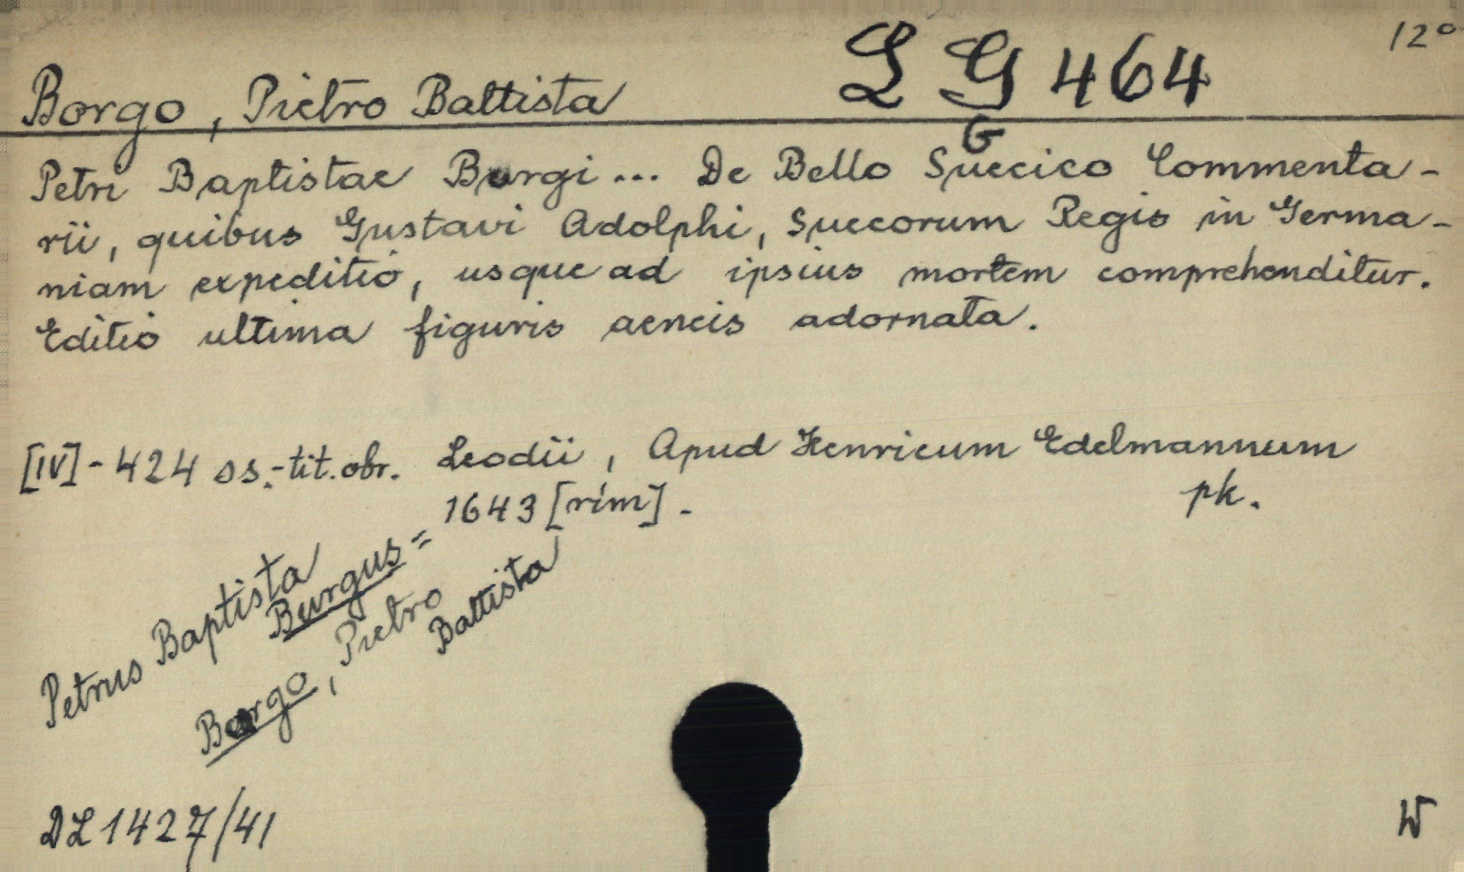 12°
L G 464
Borgo, Pietro Battista
G
Petri Baptistae Burgi ... De Bello Suecico Commenta-
rii, quibus Gustavi Adolphi, Suecorum Regis in Germa-
niam expeditio, usque ad ipsius mortem comprehenditur.
Editio ultima figuris aeneis adornata.
[IV] - 424 ss. - tit. obr. Leodii, Apud Henricum Edelmannum
1643 [rím]. - pk.
Petrus Baptista
Burgus =
Borgo, Pietro
Battista
DL 1427/41
W